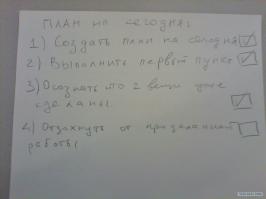 ПЛАН НА СЕГОДНЯ:
1) Создать план на сегодня
2) Выполнить первый пункт
3) Осознать что 2 вещи уже
сделаны.
4) Отдохнуть от проделанной
работы